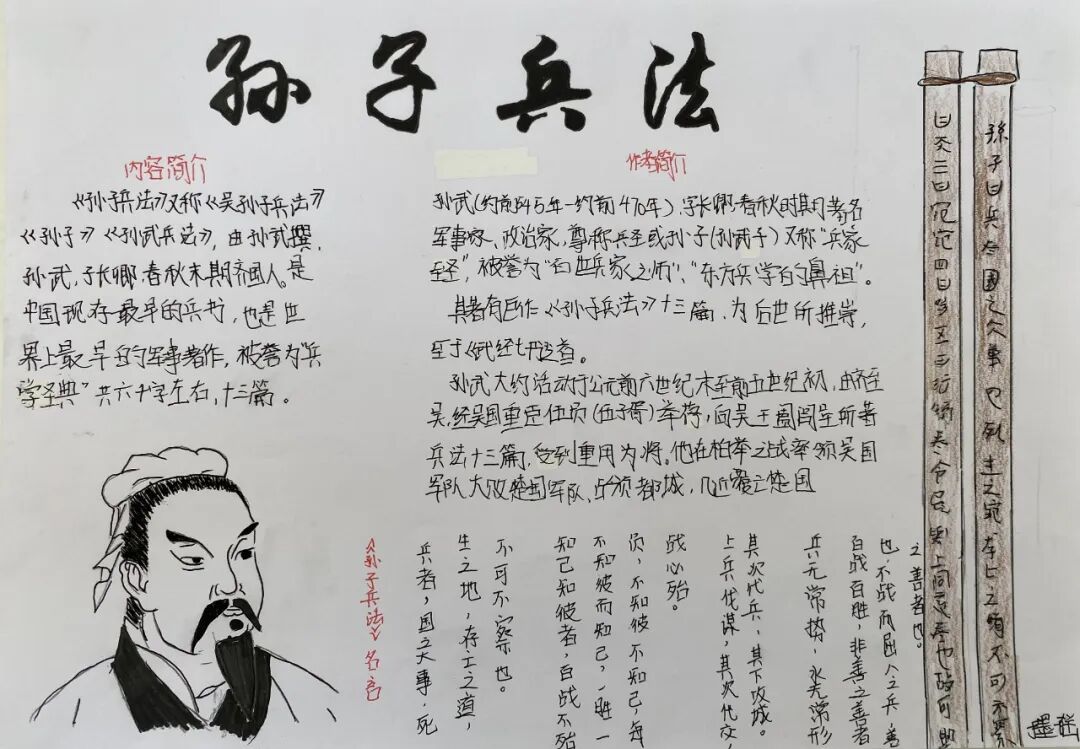 孙子兵法
内容简介
《孙子兵法》又称《吴孙子兵法》
《孙子》《孙武兵法》，由孙武撰，
孙武，子长卿，春秋末期齐国人。是
中国现存最早的兵书，也是世
界上最早的军事著作，被誉为“兵
学圣典”共六千字左右，十三篇。
作者简介
孙武（约前545年-约前470年）字长卿，春秋时期著名
军事家、政治家，尊称兵圣或孙子（孙武子）又称“兵家
至圣”，被誉为“百世兵家之师”、“东方兵学的鼻祖”。
其著有巨作《孙子兵法》十三篇，为后世所推崇，
至于《武经七书》首。
孙武大约活动于公元前六世纪末至前五世纪初，由齐至
吴，经吴国重臣伍员（伍子胥）举荐，向吴王阖闾呈所著
兵法十三篇，受到重用为将。他在柏举之战率领吴国
军队大败楚国军队，占领都城，几近灭亡楚国
《孙子兵法》名言
兵者，国之大事，死
生之地，存亡之道，
不可不察也。
知己知彼者，百战不殆
不知彼而知己，一胜一
负，不知彼不知己，每
战必殆。
上兵伐谋，其次伐交，
其次伐兵，其下攻城。
兵无常势，水无常形
百战百胜，非善之善者
也，不战而屈人之兵，善
之善者也。
孫子曰兵者國之大事也死生之